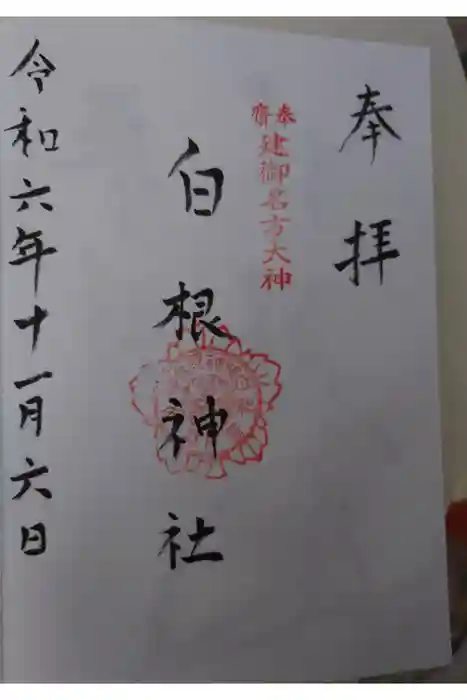 奉拝
奉齋
建御名方大神
白根神社
令和六年十一月六日